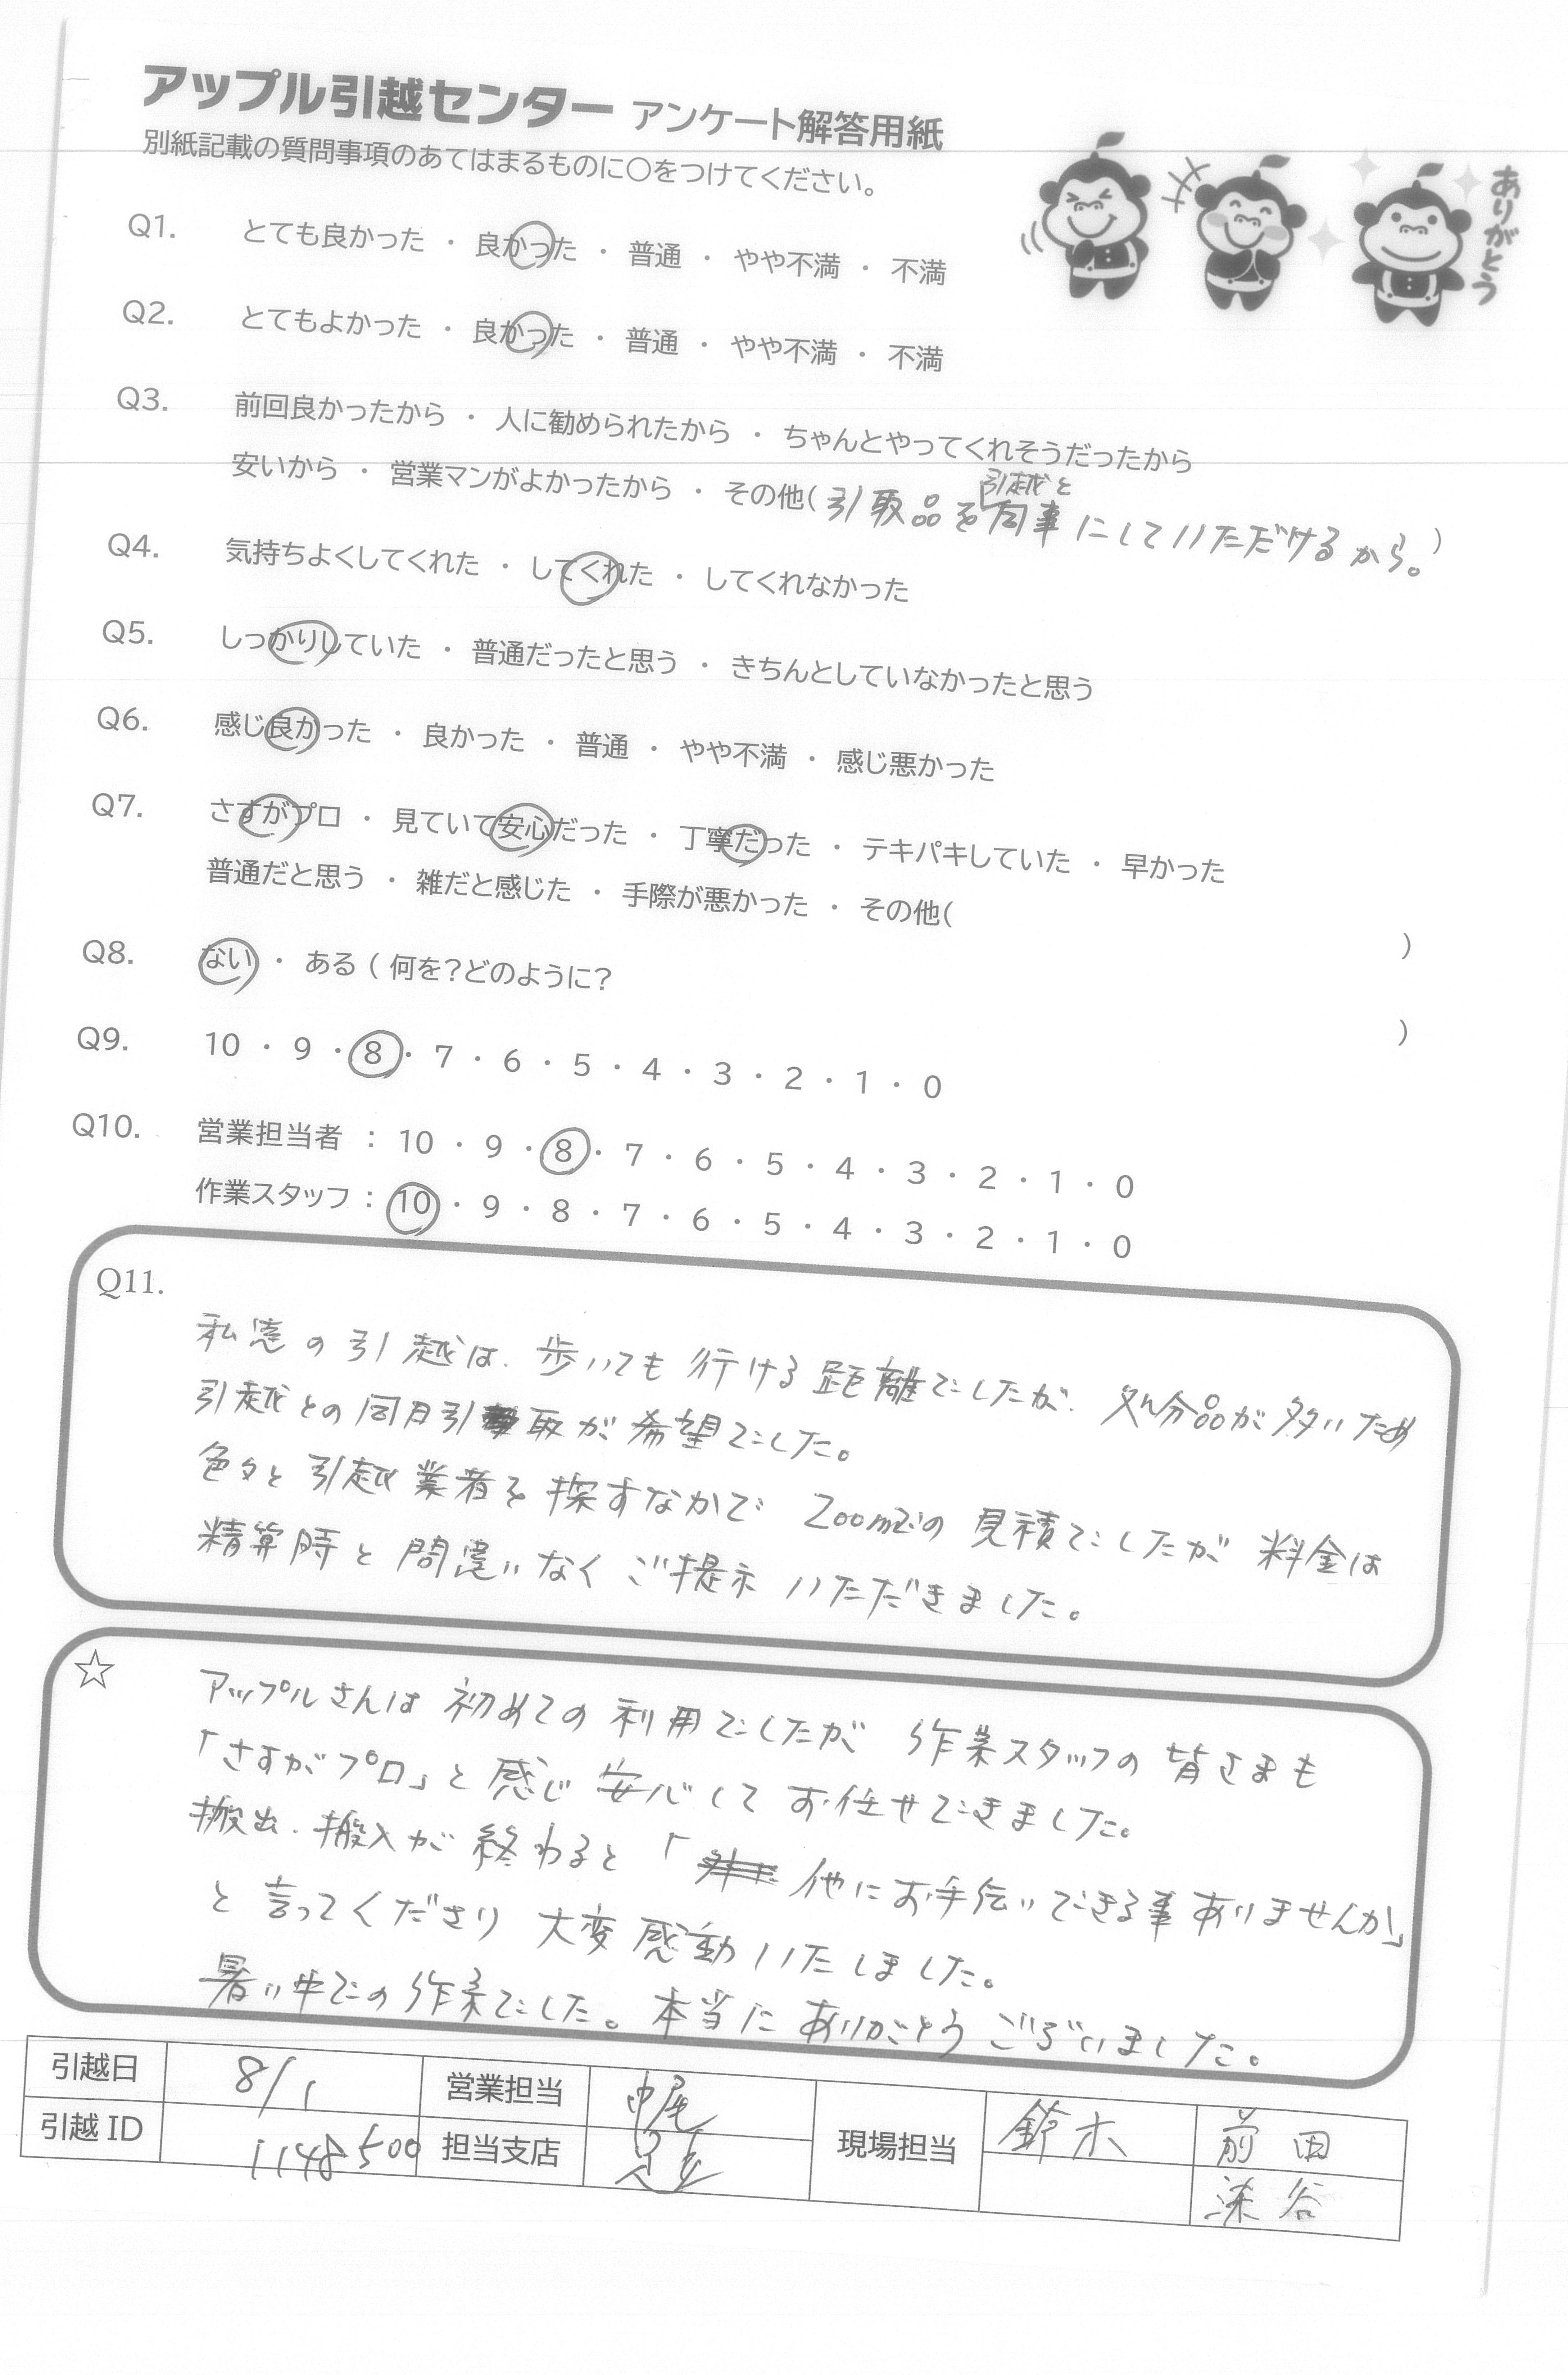 アップル引越センター アンケート解答用紙
別紙記載の質問事項のあてはまるものに○をつけてください。
ありがとう
Q1. とても良かった ・ 良かった ・ 普通 ・ やや不満 ・ 不満
Q2. とてもよかった ・ 良かった ・ 普通 ・ やや不満 ・ 不満
Q3. 前回良かったから ・ 人に勧められたから ・ ちゃんとやってくれそうだったから
安いから ・ 営業マンがよかったから ・ その他( 引取品を引越と同事にしていただけるから。 )
Q4. 気持ちよくしてくれた ・ してくれた ・ してくれなかった
Q5. しっかりしていた ・ 普通だったと思う ・ きちんとしていなかったと思う
Q6. 感じ良かった ・ 良かった ・ 普通 ・ やや不満 ・ 感じ悪かった
Q7. さすがプロ ・ 見ていて安心だった ・ 丁寧だった ・ テキパキしていた ・ 早かった
普通だと思う ・ 雑だと感じた ・ 手際が悪かった ・ その他( )
Q8. ない ・ ある ( 何を?どのように? )
Q9. 10 ・ 9 ・ 8 ・ 7 ・ 6 ・ 5 ・ 4 ・ 3 ・ 2 ・ 1 ・ 0
Q10. 営業担当者 : 10 ・ 9 ・ 8 ・ 7 ・ 6 ・ 5 ・ 4 ・ 3 ・ 2 ・ 1 ・ 0
作業スタッフ : 10 ・ 9 ・ 8 ・ 7 ・ 6 ・ 5 ・ 4 ・ 3 ・ 2 ・ 1 ・ 0
Q11.
私達の引越は、歩いても行ける距離でしたが、処分品が多いため
引越との同日引取が希望でした。
色々と引越業者を探すなかで Zoomでの見積でしたが料金は
精算時と間違いなくご提示いただきました。
☆
アップルさんは初めての利用でしたが作業スタッフの皆さまも
「さすがプロ」と感じ安心してお任せできました。
搬出、搬入が終わると「他にお手伝いできる事ありませんか」
と言ってくださり大変感動いたしました。
暑い中での作業でした。本当にありがとうございました。
引越日 8/1 営業担当 中尾 現場担当 鈴木 前田
引越 ID 1148500 担当支店 足立 深谷